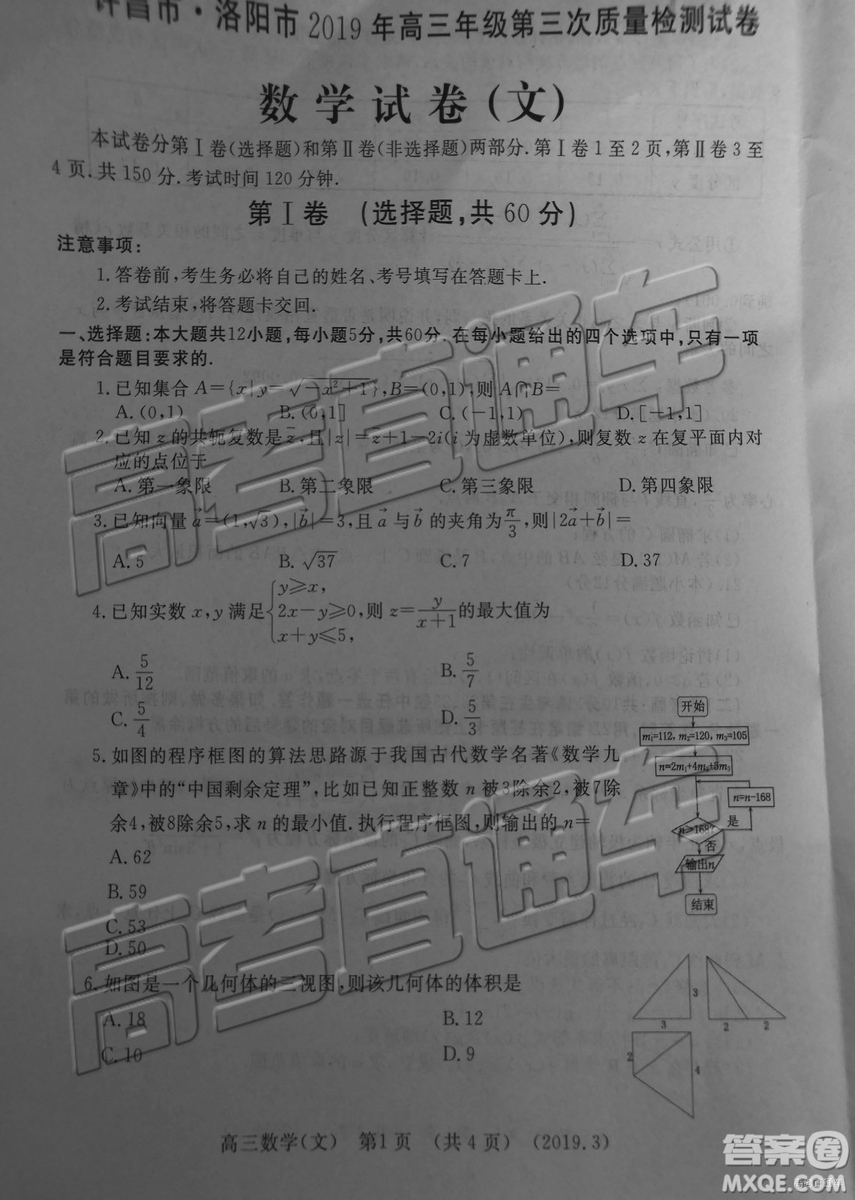 许昌市·洛阳市2019年高三年级第三次质量检测试卷
数学试卷(文)
本试卷分第Ⅰ卷(选择题)和第Ⅱ卷(非选择题)两部分.第Ⅰ卷1至2页,第Ⅱ卷3至
4页.共150分.考试时间120分钟.
第Ⅰ卷 (选择题,共60分)
注意事项:
1.答卷前,考生务必将自己的姓名、考号填写在答题卡上.
2.考试结束,将答题卡交回.
一、选择题:本大题共12小题,每小题5分,共60分.在每小题给出的四个选项中,只有一项
是符合题目要求的.
1.已知集合A={x|y=√(-x²+1)},B=(0,1),则A∩B=
A.(0,1) B.(0,1] C.(-1,1) D.[-1,1]
2.已知z的共轭复数是z̄,且|z|=z̄+1-2i(i为虚数单位),则复数z在复平面内对
应的点位于
A.第一象限 B.第二象限 C.第三象限 D.第四象限
3.已知向量a⃗=(1,√3),|b⃗|=3,且a⃗与b⃗的夹角为π/3,则|2a⃗+b⃗|=
A.5 B.√37 C.7 D.37
4.已知实数x,y满足{y≥x, 2x-y≥0, x+y≤5,则z=y/(x+1)的最大值为
A.5/12 B.5/7
C.5/4 D.5/3
5.如图的程序框图的算法思路源于我国古代数学名著《数学九
章》中的“中国剩余定理”,比如已知正整数n被3除余2,被7除
余4,被8除余5,求n的最小值.执行程序框图,则输出的n=
A.62
B.59
C.53
D.50
开始
m₁=112,m₂=120,m₃=105
n=2m₁+4m₂+5m₃
n=n-168
n≥168?
是
否
输出n
结束
6.如图是一个几何体的三视图,则该几何体的体积是
A.18 B.12
C.10 D.9
3
3
2 2
2
4
高三数学(文) 第1页 (共4页) (2019.3)
高考直通车
高考直通车
答案圈
MXQE.COM